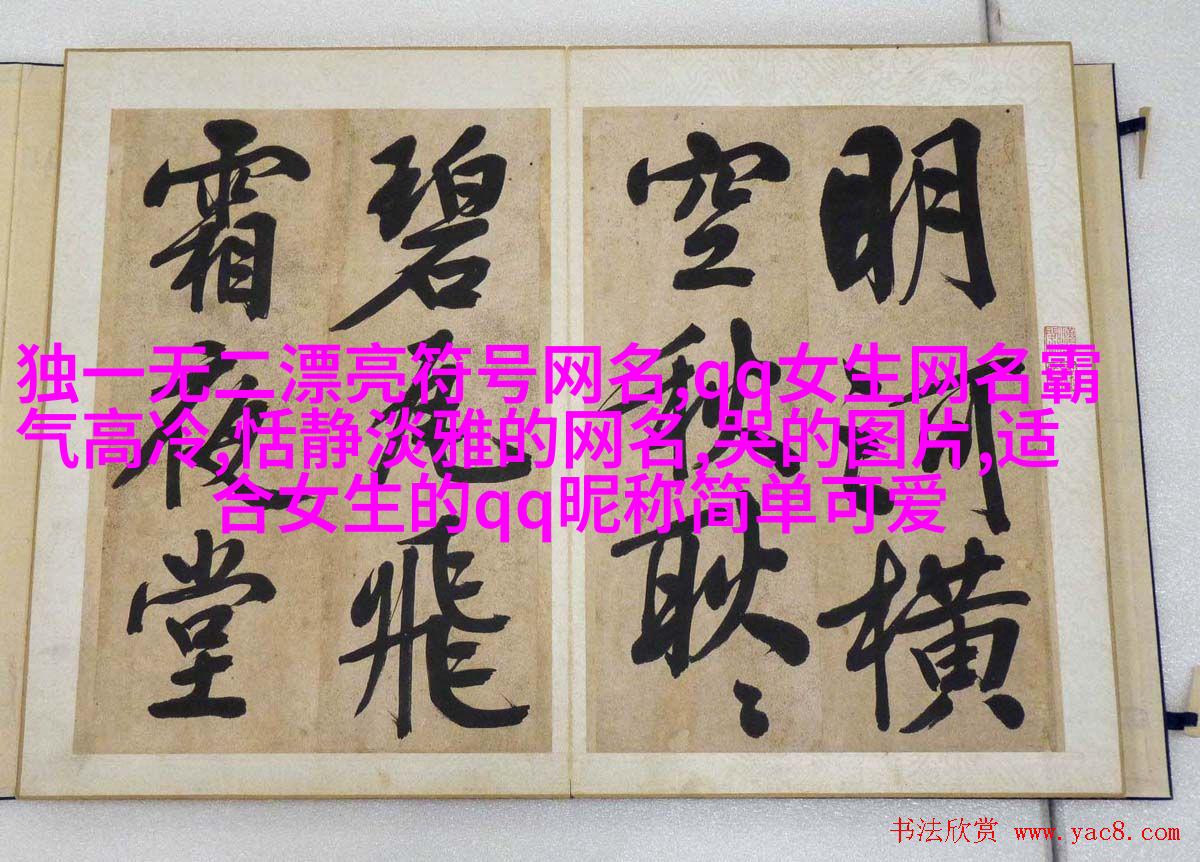 明河横
空秋耿〻
碧瓦飛
霜夜堂
独一无二漂亮符号网名,qq女生网名霸
气高冷,恬静淡雅的网名,哭的图片,适
合女生的qq昵称简单可爱
书法欣赏 www.yac8.com